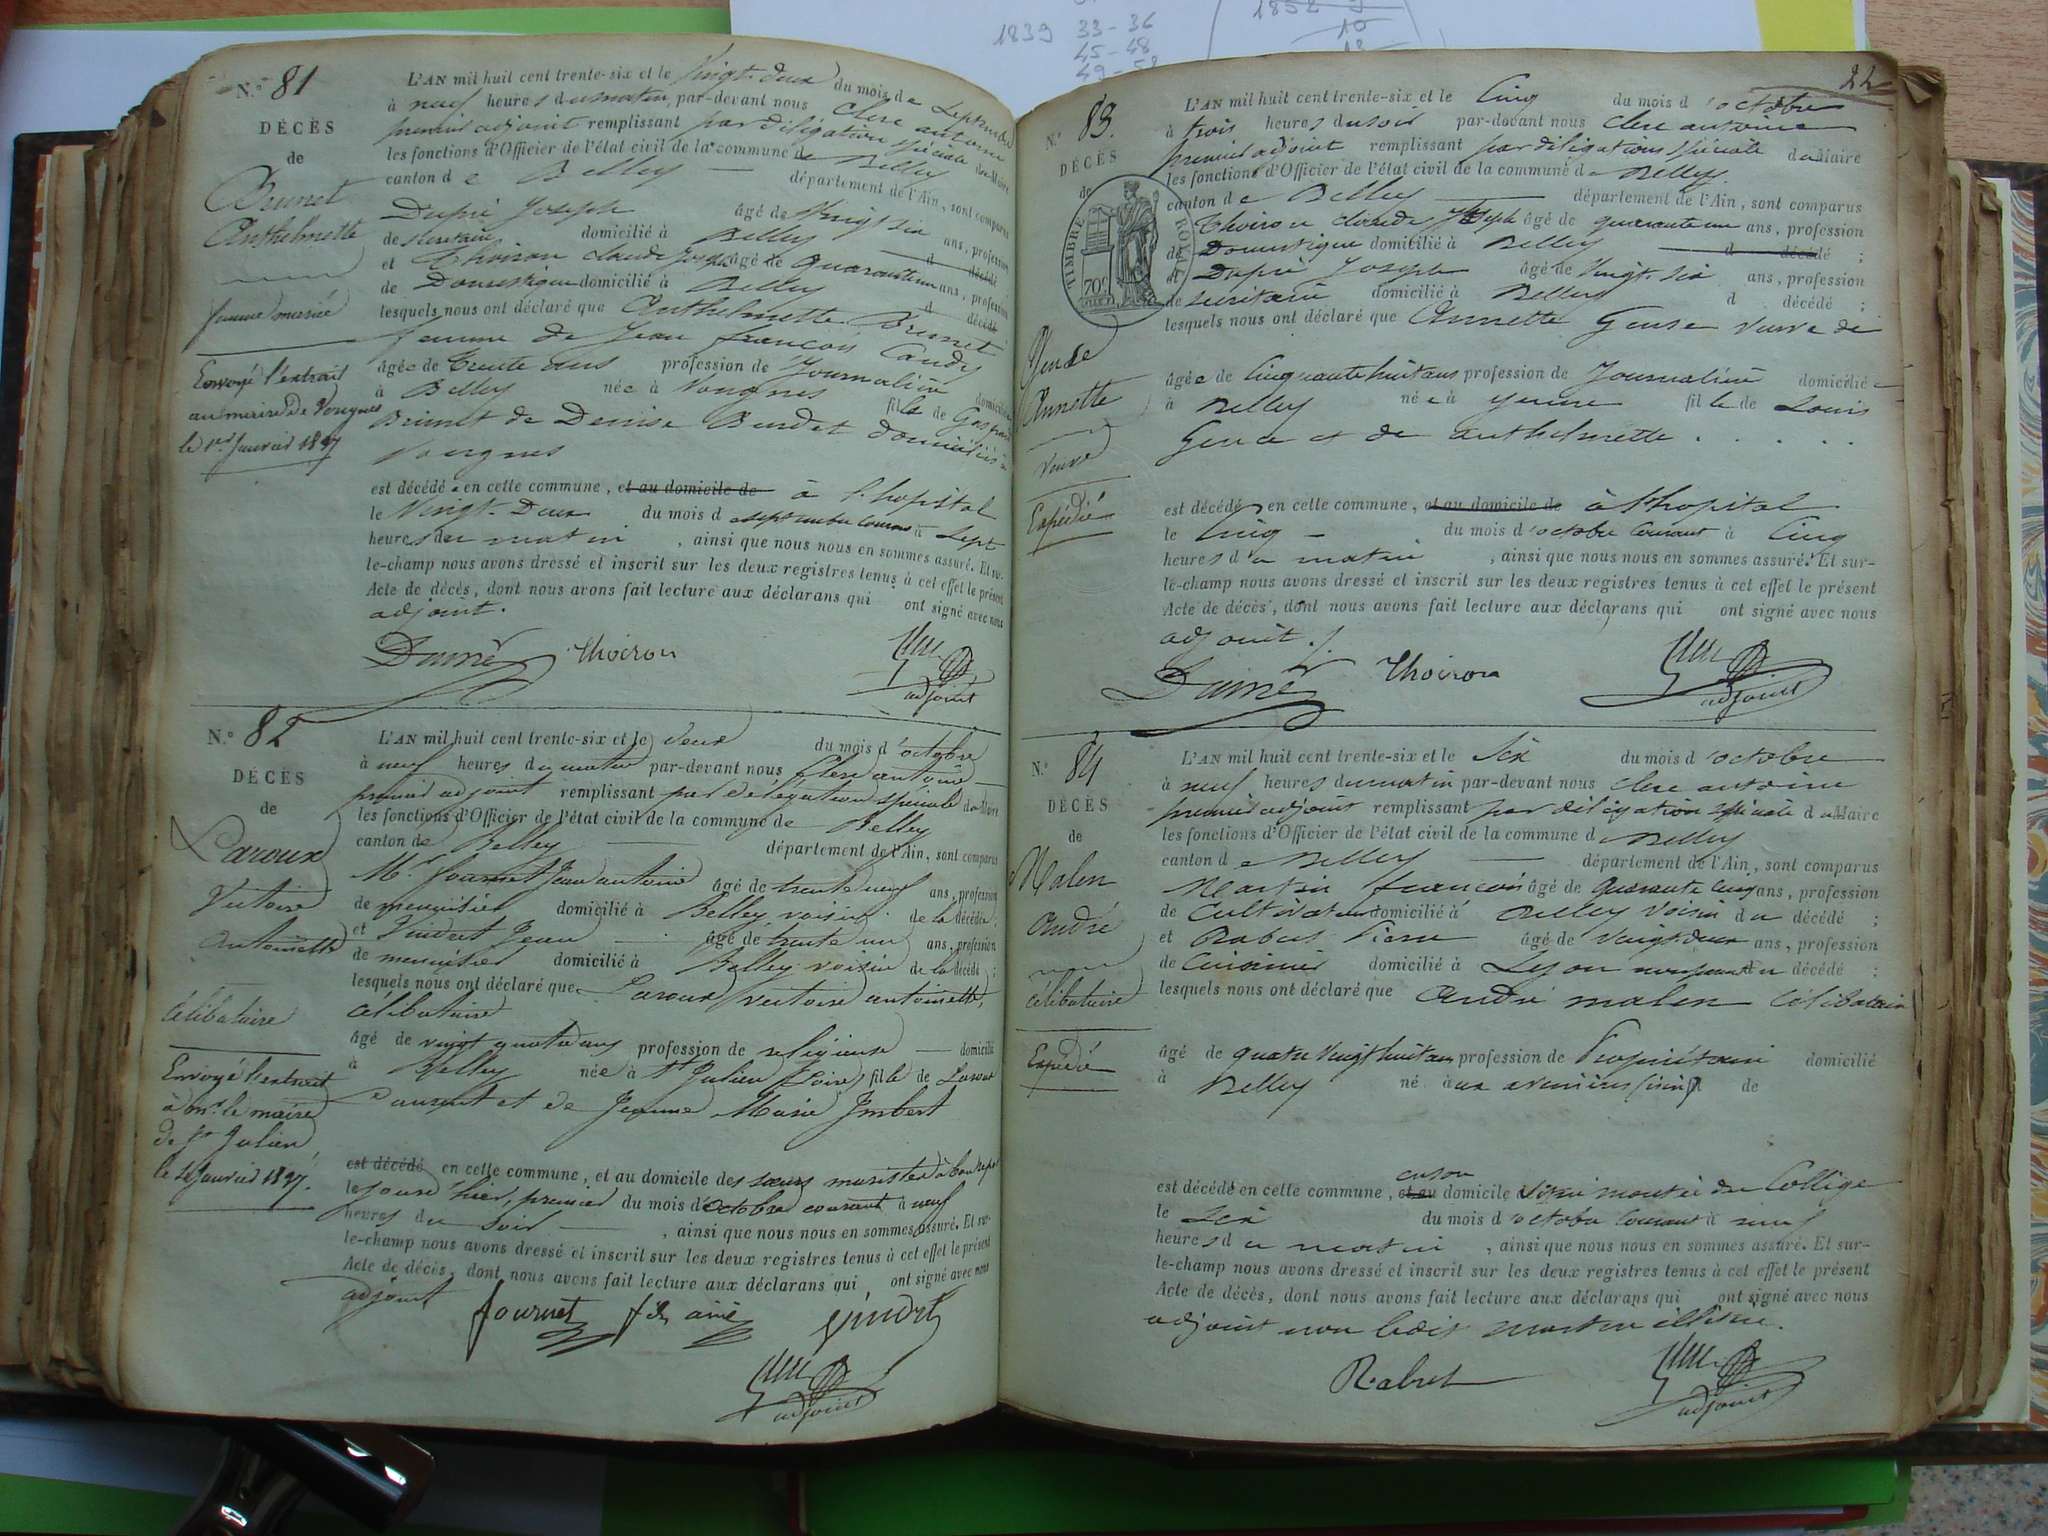 1839 33-36
45-48
49-58
1852 9
10
N.º 81
DÉCÈS
de
Brunet
Anthelmette
femme mariée
Envoyé l'extrait
au maire de Vongnes
le 1er Janvier 1837
L'AN mil huit cent trente-six et le Vingt-deux du mois de Septembre
à neuf heures du matin, par-devant nous Clerc antoine
premier adjoint remplissant par délégation spéciale du Maire
les fonctions d'Officier de l'état civil de la commune de Belley
canton de Belley — département de l'Ain, sont comparus
Dupré Joseph âgé de Vingt six ans, profession
de secrétaire domicilié à Belley d décédé
et Thoiron claude Joseph âgé de quarante un ans, profession
de Domestique domicilié à Belley d décédé
lesquels nous ont déclaré que Anthelmette Brunet
femme de Jean françois Candy
âgée de trente ans profession de Journalière domiciliée
à Belley née à Vongnes fille de Gaspard
Brunet de Denise Burdet domiciliés à
Vongnes
est décédée en cette commune, et au domicile de à l'hopital
le Vingt-Deux du mois de septembre courant à sept
heures du matin, ainsi que nous nous en sommes assuré. Et sur-
le-champ nous avons dressé et inscrit sur les deux registres tenus à cet effet le présent
Acte de décès, dont nous avons fait lecture aux déclarans qui ont signé avec nous
adjoint.
Dupré Thoiron Clerc
adjoint
N.º 82
DÉCÈS
de
Laroux
Victoire
antoinette
célibataire
Envoyé l'extrait
à Mr. le maire
de St Julien
le 4 Janvier 1837.
L'AN mil huit cent trente-six et le deux du mois d'octobre
à neuf heures du matin par-devant nous Clerc antoine
premier adjoint remplissant par délégation spéciale du Maire
les fonctions d'Officier de l'état civil de la commune de Belley
canton de Belley — département de l'Ain, sont comparus
Mr. fournet Jean antoine âgé de trente neuf ans, profession
de menuisier domicilié à Belley voisin de la décédée ;
et Vindret Jean — âgé de trente un ans, profession
de menuisier domicilié à Belley voisin de la décédée ;
lesquels nous ont déclaré que Laroux victoire antoinette,
célibataire
âgé de vingt quatre ans profession de religieuse — domicilié
à Belley née à St Julien (Loire) fille de Laroux
Laurent et de Jeanne Marie Imbert
est décédé en cette commune, et au domicile des sœurs maristes à bon repos
le jour d'hier, premier du mois d'octobre courant à neuf
heures du soir —, ainsi que nous nous en sommes assuré. Et sur-
le-champ nous avons dressé et inscrit sur les deux registres tenus à cet effet le présent
Acte de décès, dont nous avons fait lecture aux déclarans qui ont signé avec nous
adjoint
fournet fils ainé Vindret
Clerc
adjoint
22
N.º 83.
DÉCÈS
de
TIMBRE ROYAL
70c
Annette
Veuve
Expédié
L'AN mil huit cent trente-six et le Cinq du mois d'octobre
à trois heures du soir par-devant nous Clerc antoine
premier adjoint remplissant par délégation spéciale du Maire
les fonctions d'Officier de l'état civil de la commune de Belley.
canton de Belley — département de l'Ain, sont comparus
Thoiron claude Joseph âgé de quarante un ans, profession
de Domestique domicilié à Belley d décédé ;
et Dupré Joseph âgé de Vingt-six ans, profession
de secrétaire domicilié à Belley d décédé ;
lesquels nous ont déclaré que Annette veuve de
âgée de Cinquante huit ans profession de Journalière domicilié
à Belley née à yenne fille de Louis
et de anthelmette . . . . .
est décédé en cette commune, et au domicile de à l'hopital
le Cinq — du mois d'octobre courant à Cinq
heures du matin, ainsi que nous nous en sommes assuré. Et sur-
le-champ nous avons dressé et inscrit sur les deux registres tenus à cet effet le présent
Acte de décès, dont nous avons fait lecture aux déclarans qui ont signé avec nous
adjoint ./.
Dupré Thoiron Clerc
adjoint
N.º 84
DÉCÈS
de
Malen
André
célibataire
Expédié
L'AN mil huit cent trente-six et le Six du mois d'octobre
à neuf heures du matin par-devant nous Clerc antoine
premier adjoint remplissant par délégation spéciale du Maire
les fonctions d'Officier de l'état civil de la commune de Belley
canton de Belley — département de l'Ain, sont comparus
Martin françois âgé de quarante cinq ans, profession
de Cultivateur domicilié à Belley voisin du décédé ;
et Rabut Pierre âgé de Vingt-deux ans, profession
de Cuisinier domicilié à Leyon du décédé ;
lesquels nous ont déclaré que André malen célibataire
âgé de quatre vingt huit ans profession de Propriétaire domicilié
à Belley né aux (Isère) fil de
est décédé en cette commune, et au domicile en son montée du Collège
le Six du mois d'octobre courant à neuf
heures du matin, ainsi que nous nous en sommes assuré. Et sur-
le-champ nous avons dressé et inscrit sur les deux registres tenus à cet effet le présent
Acte de décès, dont nous avons fait lecture aux déclarans qui ont signé avec nous
adjoint non ledit martin illitéré.
Rabut Clerc
adjoint